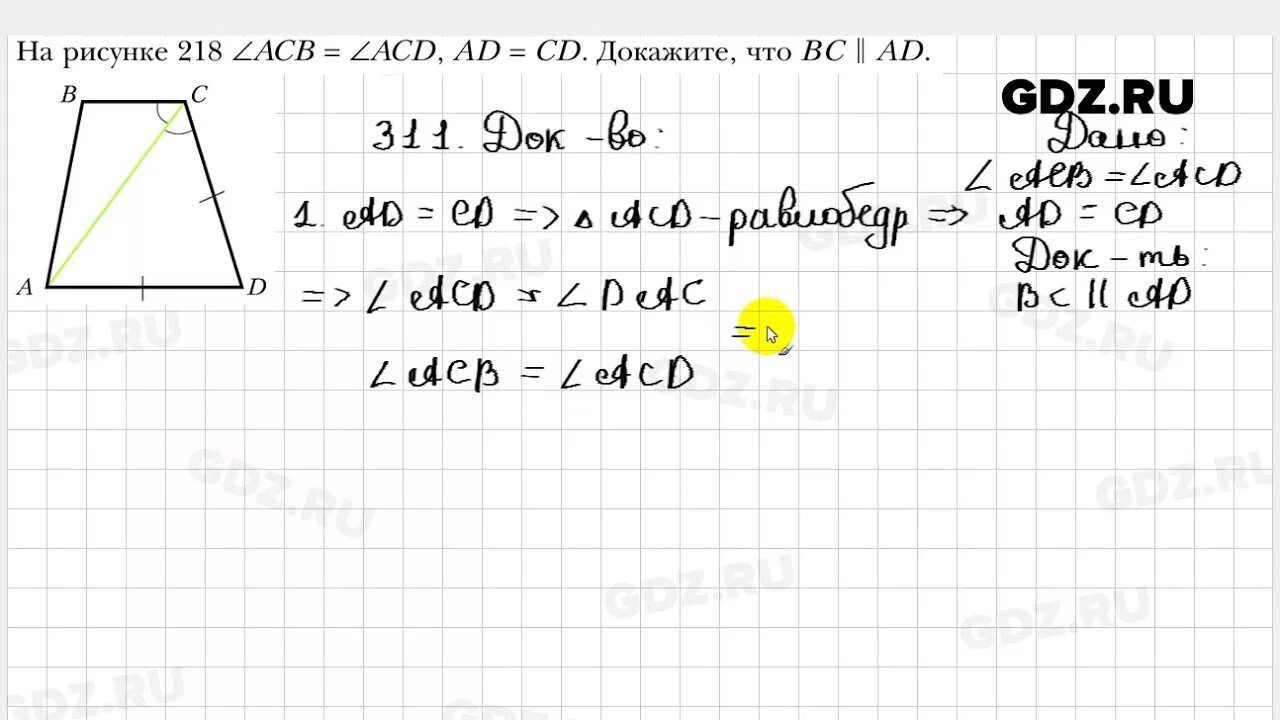 На рисунке 218 ∠ACB = ∠ACD, AD = CD. Докажите, что BC ∥ AD.
GDZ.RU
B C
A D
311. Док-во:
1. AD = CD => △ ACD - равнобедр =>
=> ∠ ACD = ∠ DAC
=
∠ ACB = ∠ ACD
Дано:
∠ ACB = ∠ACD
AD = CD
Док-ть:
BC || AD
GDZ.RU
GDZ.RU
GDZ.RU
GDZ.RU
GDZ.RU
GDZ.RU
GDZ.RU
GDZ.RU
GDZ.RU
GDZ.RU
GDZ.RU